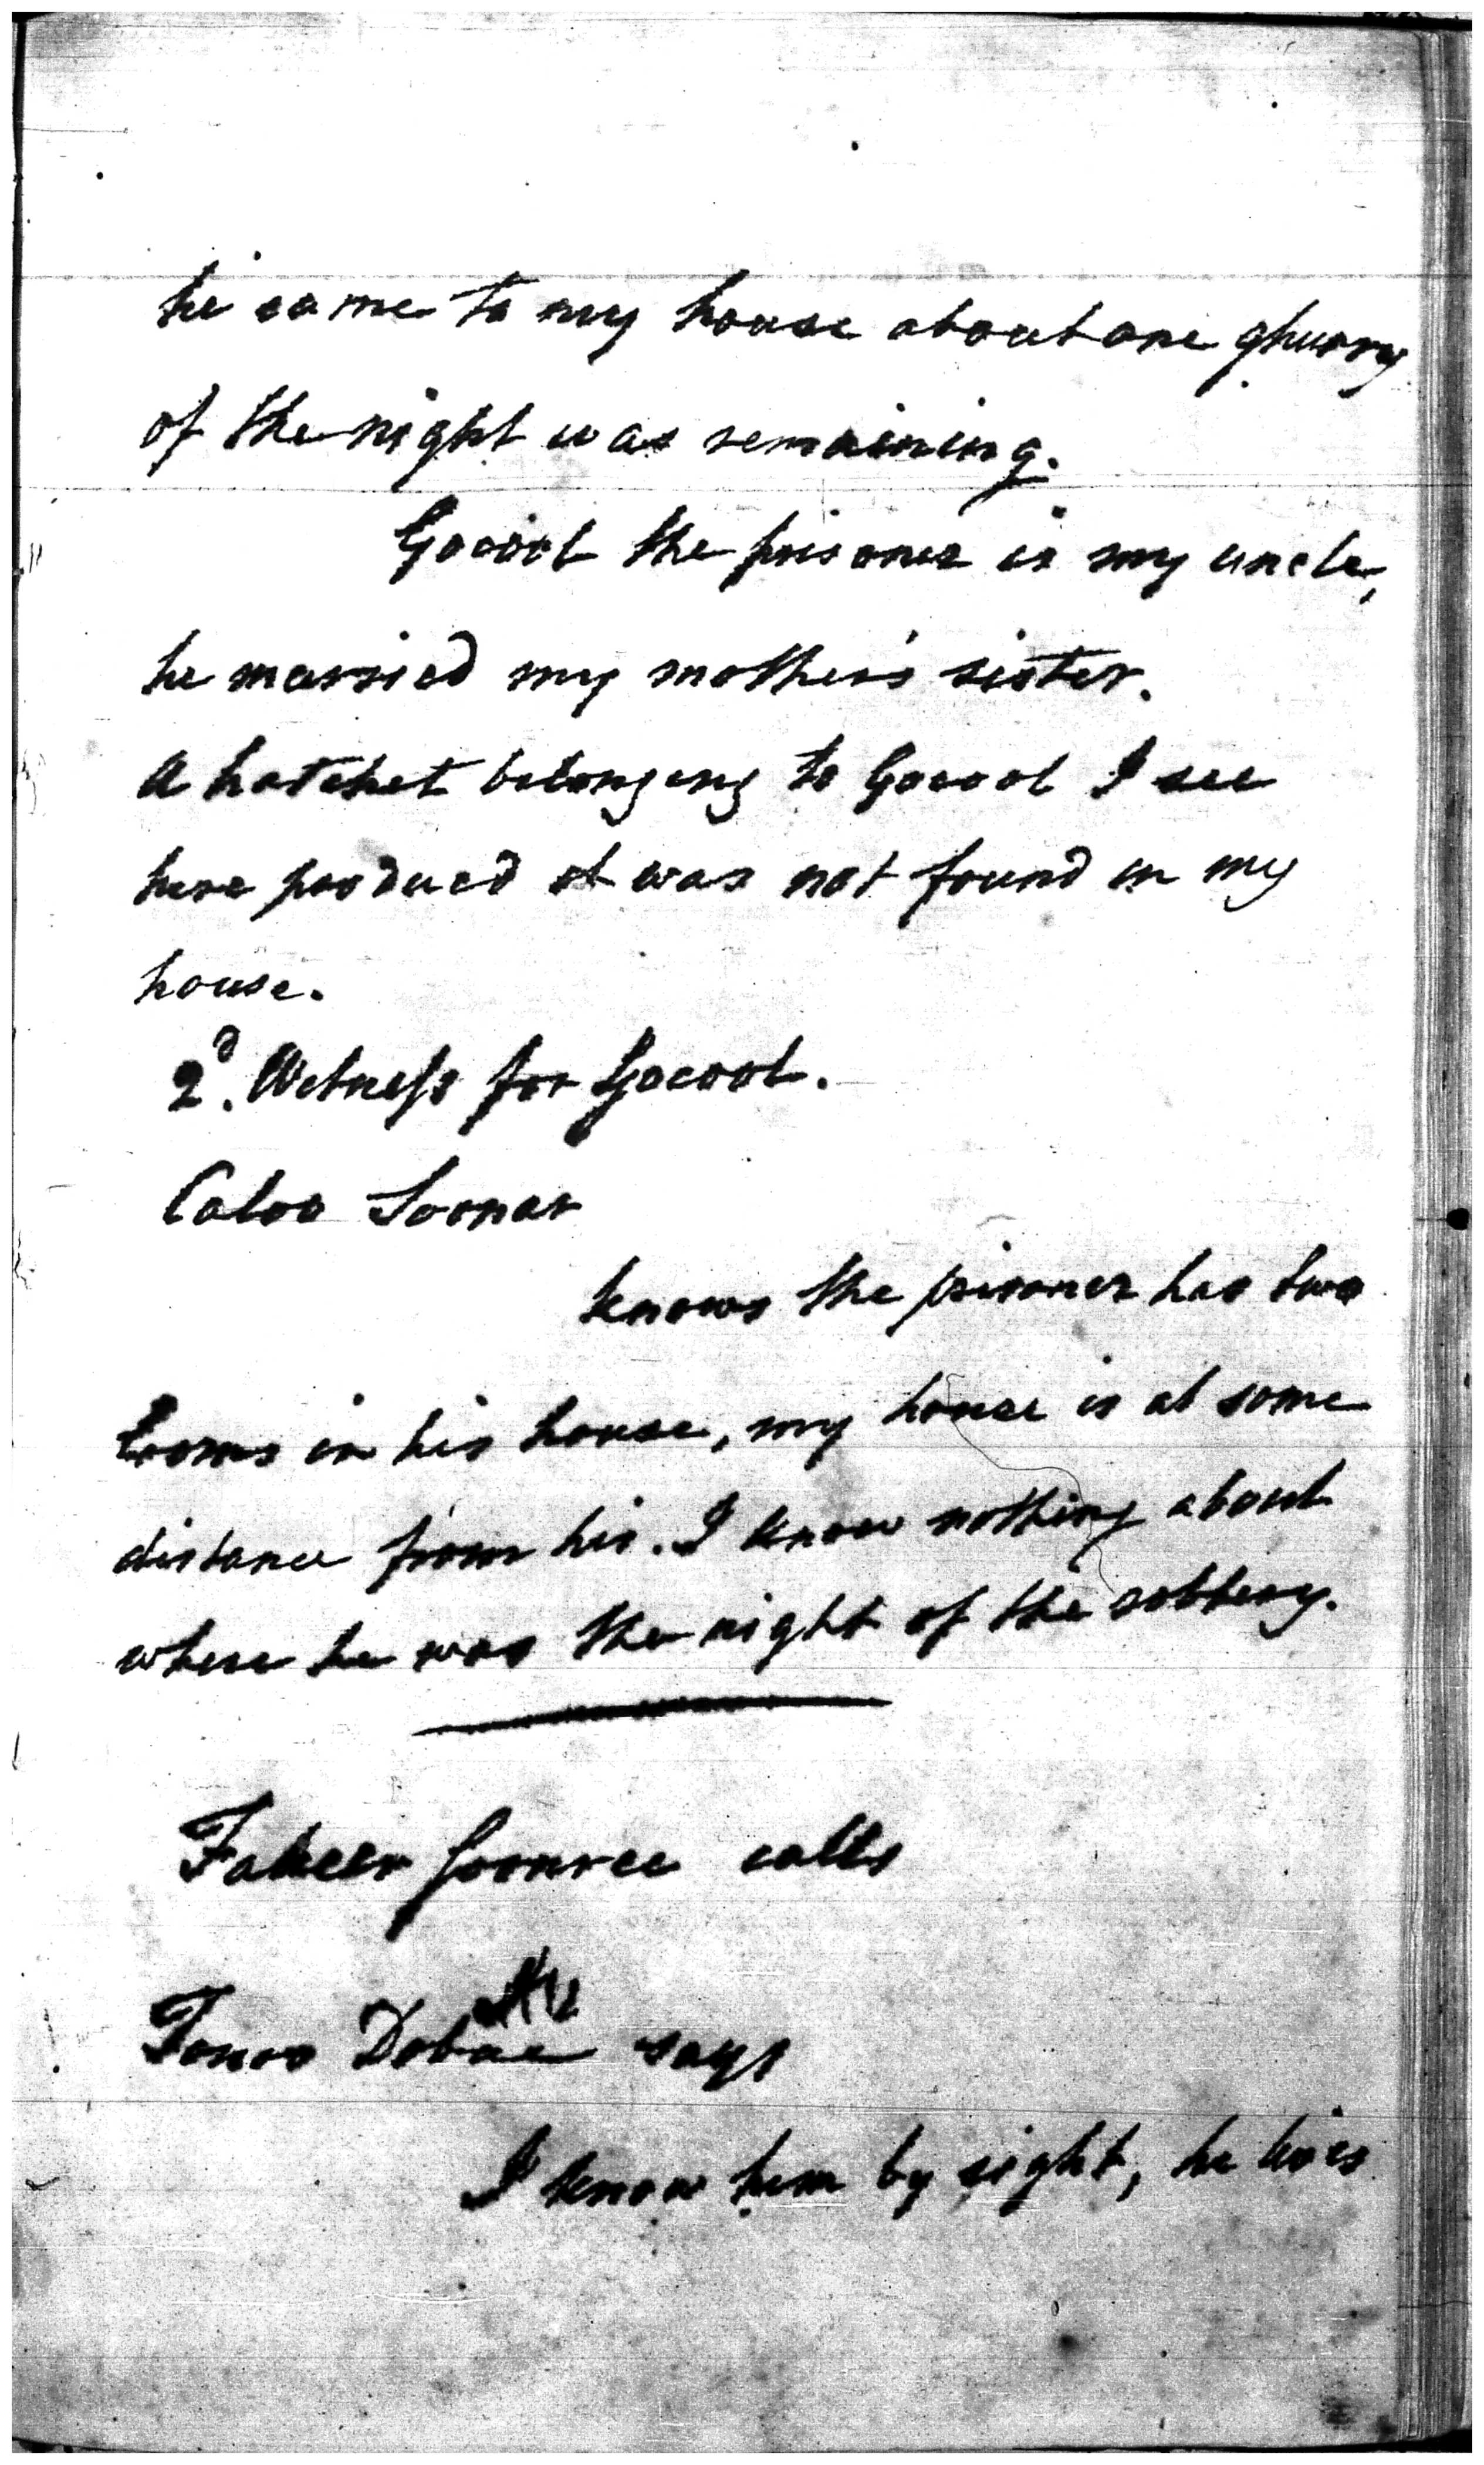 he came to my house about one ghurry
of the night was remaining.
Gocool the prisoner is my uncle,
he married my mother's sister.
A hatchet belonging to Gocool I see
here produced it was not found in my
house.
2d. Witness for Gocool.
Caloo Soonar
knows the prisoner has two
looms in his house, my house is at some
distance from his. I know nothing about
where he was the night of the robbery.
Fakeer Joonree calls
says
I know him by sight, he lives